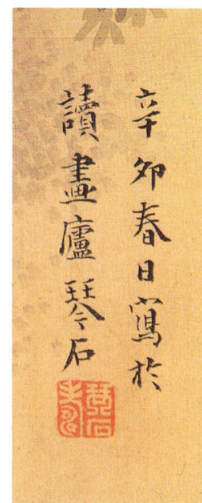 辛卯春日寫於
讀畫廬琴石